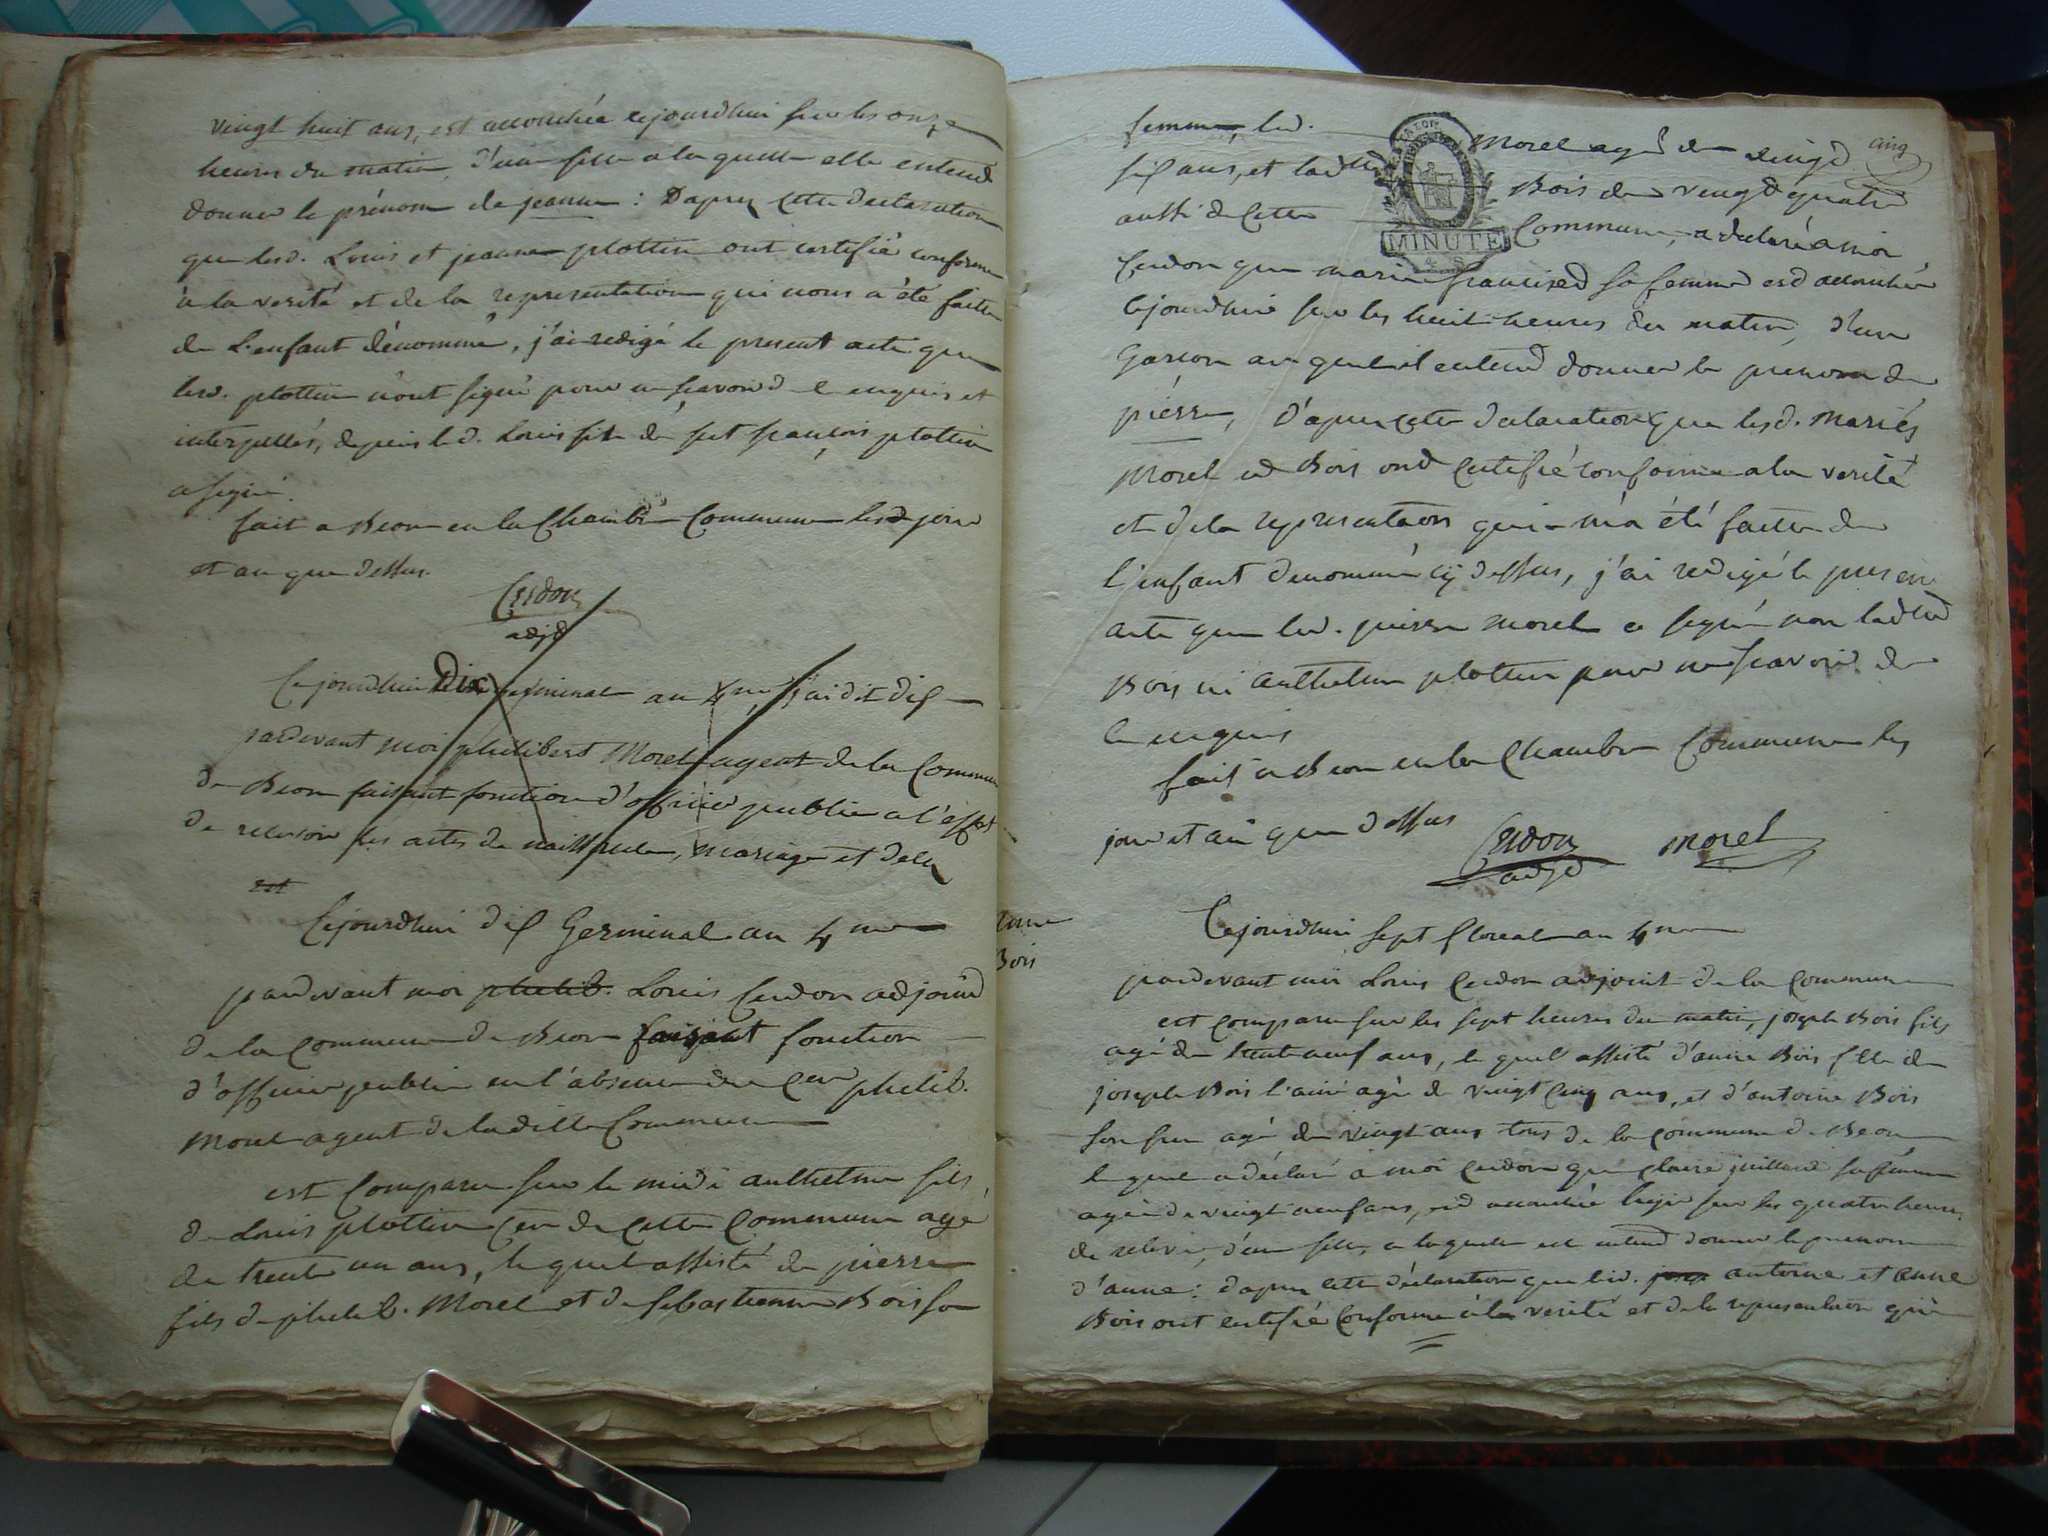 vingt huit ans, est accouchée cejourdhui sur les onze
heures du matin, d'une fille a laquelle elle entend
donner le prénom de jeanne : D'aprez cette declaration
que lesd. Louis et jeanne plottin ont certifié conforme
à la verité et de la representation qui nous a été faitte
de L'enfant dénommé, j'ai redigé le present acte que
lesd. plottin n'ont signé pour ne scavoir de ce enquis et
interpellés, depuis led. Louis fils de feu françois plottin
a signé.
fait a Beon en la Chambre Commune lesd jour
et an que dessus.
Cerdon
adjt
Cejourdhui Dix germinal an 4me, jai dit dix
pardevant moi philibert Morel agent de la Commune
de Beon faisant fonction d'officier public a l'effet
de recevoir les actes de naissance, mariage et deces
est
Cejourdhui dix Germinal an 4me
pardevant moi philib. Louis Cerdon adjoint
de la commune de Beon faisant fonction
d'officier public en l'absence du Cen philib.
Morel agent de laditte Commune
est Comparu sur le midi anthelme fils
de Louis plottin Cen de cette Commune agé
de trente un ans, lequel assisté de pierre
fils de philib. Morel et de sebastienne Bois sa
cinq
femme, led. Morel agé de vingt
six ans, et laditte Bois de vingt quatre
aussi de Cette Commune, a declaré a moi
MINUTE
Cerdon que marie francised sa femme est accouchée
cejourdhui sur les huit heures du matin, d'un
Garcon auquel il entend donner le prenom de
pierre, D'aprez cette declaration que lesd. mariés
Morel et Bois ont certifié conforme a la verité
et de la representation qui m'a été faitte de
l'enfant denommé cy dessus, j'ai redigé le present
acte que led. pierre Morel a signé non laditte
Bois ni anthelme plottin pour ne scavoir de
ce enquis
fait a Beon en la Chambre Commune les
jour et an que dessus
Cerdon Morel
adjt
anne
Bois
Cejourdhui sept floreal an 4me
pardevant moi Louis Cerdon adjoint de la commune
est comparu sur les sept heures du matin, joseph Bois fils
agé de trente neuf ans, lequel assisté d'anne Bois fille de
joseph Bois l'ainé agé de vingt cinq ans, et d'antoine Bois
son frere agé de vingt ans tous de la commune de Beon
lequel a déclaré a moi Cerdon que claire juillerd sa femme
agée de vingt neuf ans, est accouchée hyer sur les quatre heures
de relevée, d'une fille, a laquelle il entend donner le prenom
d'anne : d'aprez cette déclaration que lesd. antoine et anne
Bois ont certifié Conforme à la verité et de la representation qui